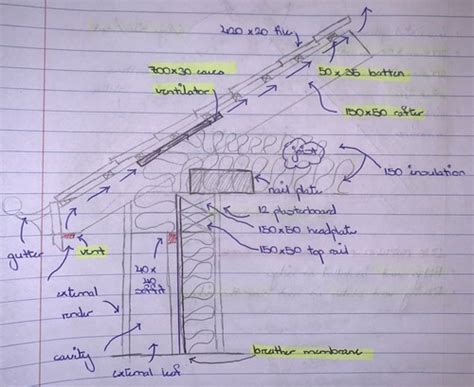 420 x 20 tile
700x30 eaves
ventilator
50 x 35 batten
150x50 rafter
joist
150 insulation
nail plate
12 plasterboard
150x50 headplate
150x50 top rail
gutter
vent
40 x
40
soffit
external
render
cavity
external leaf
breather membrane